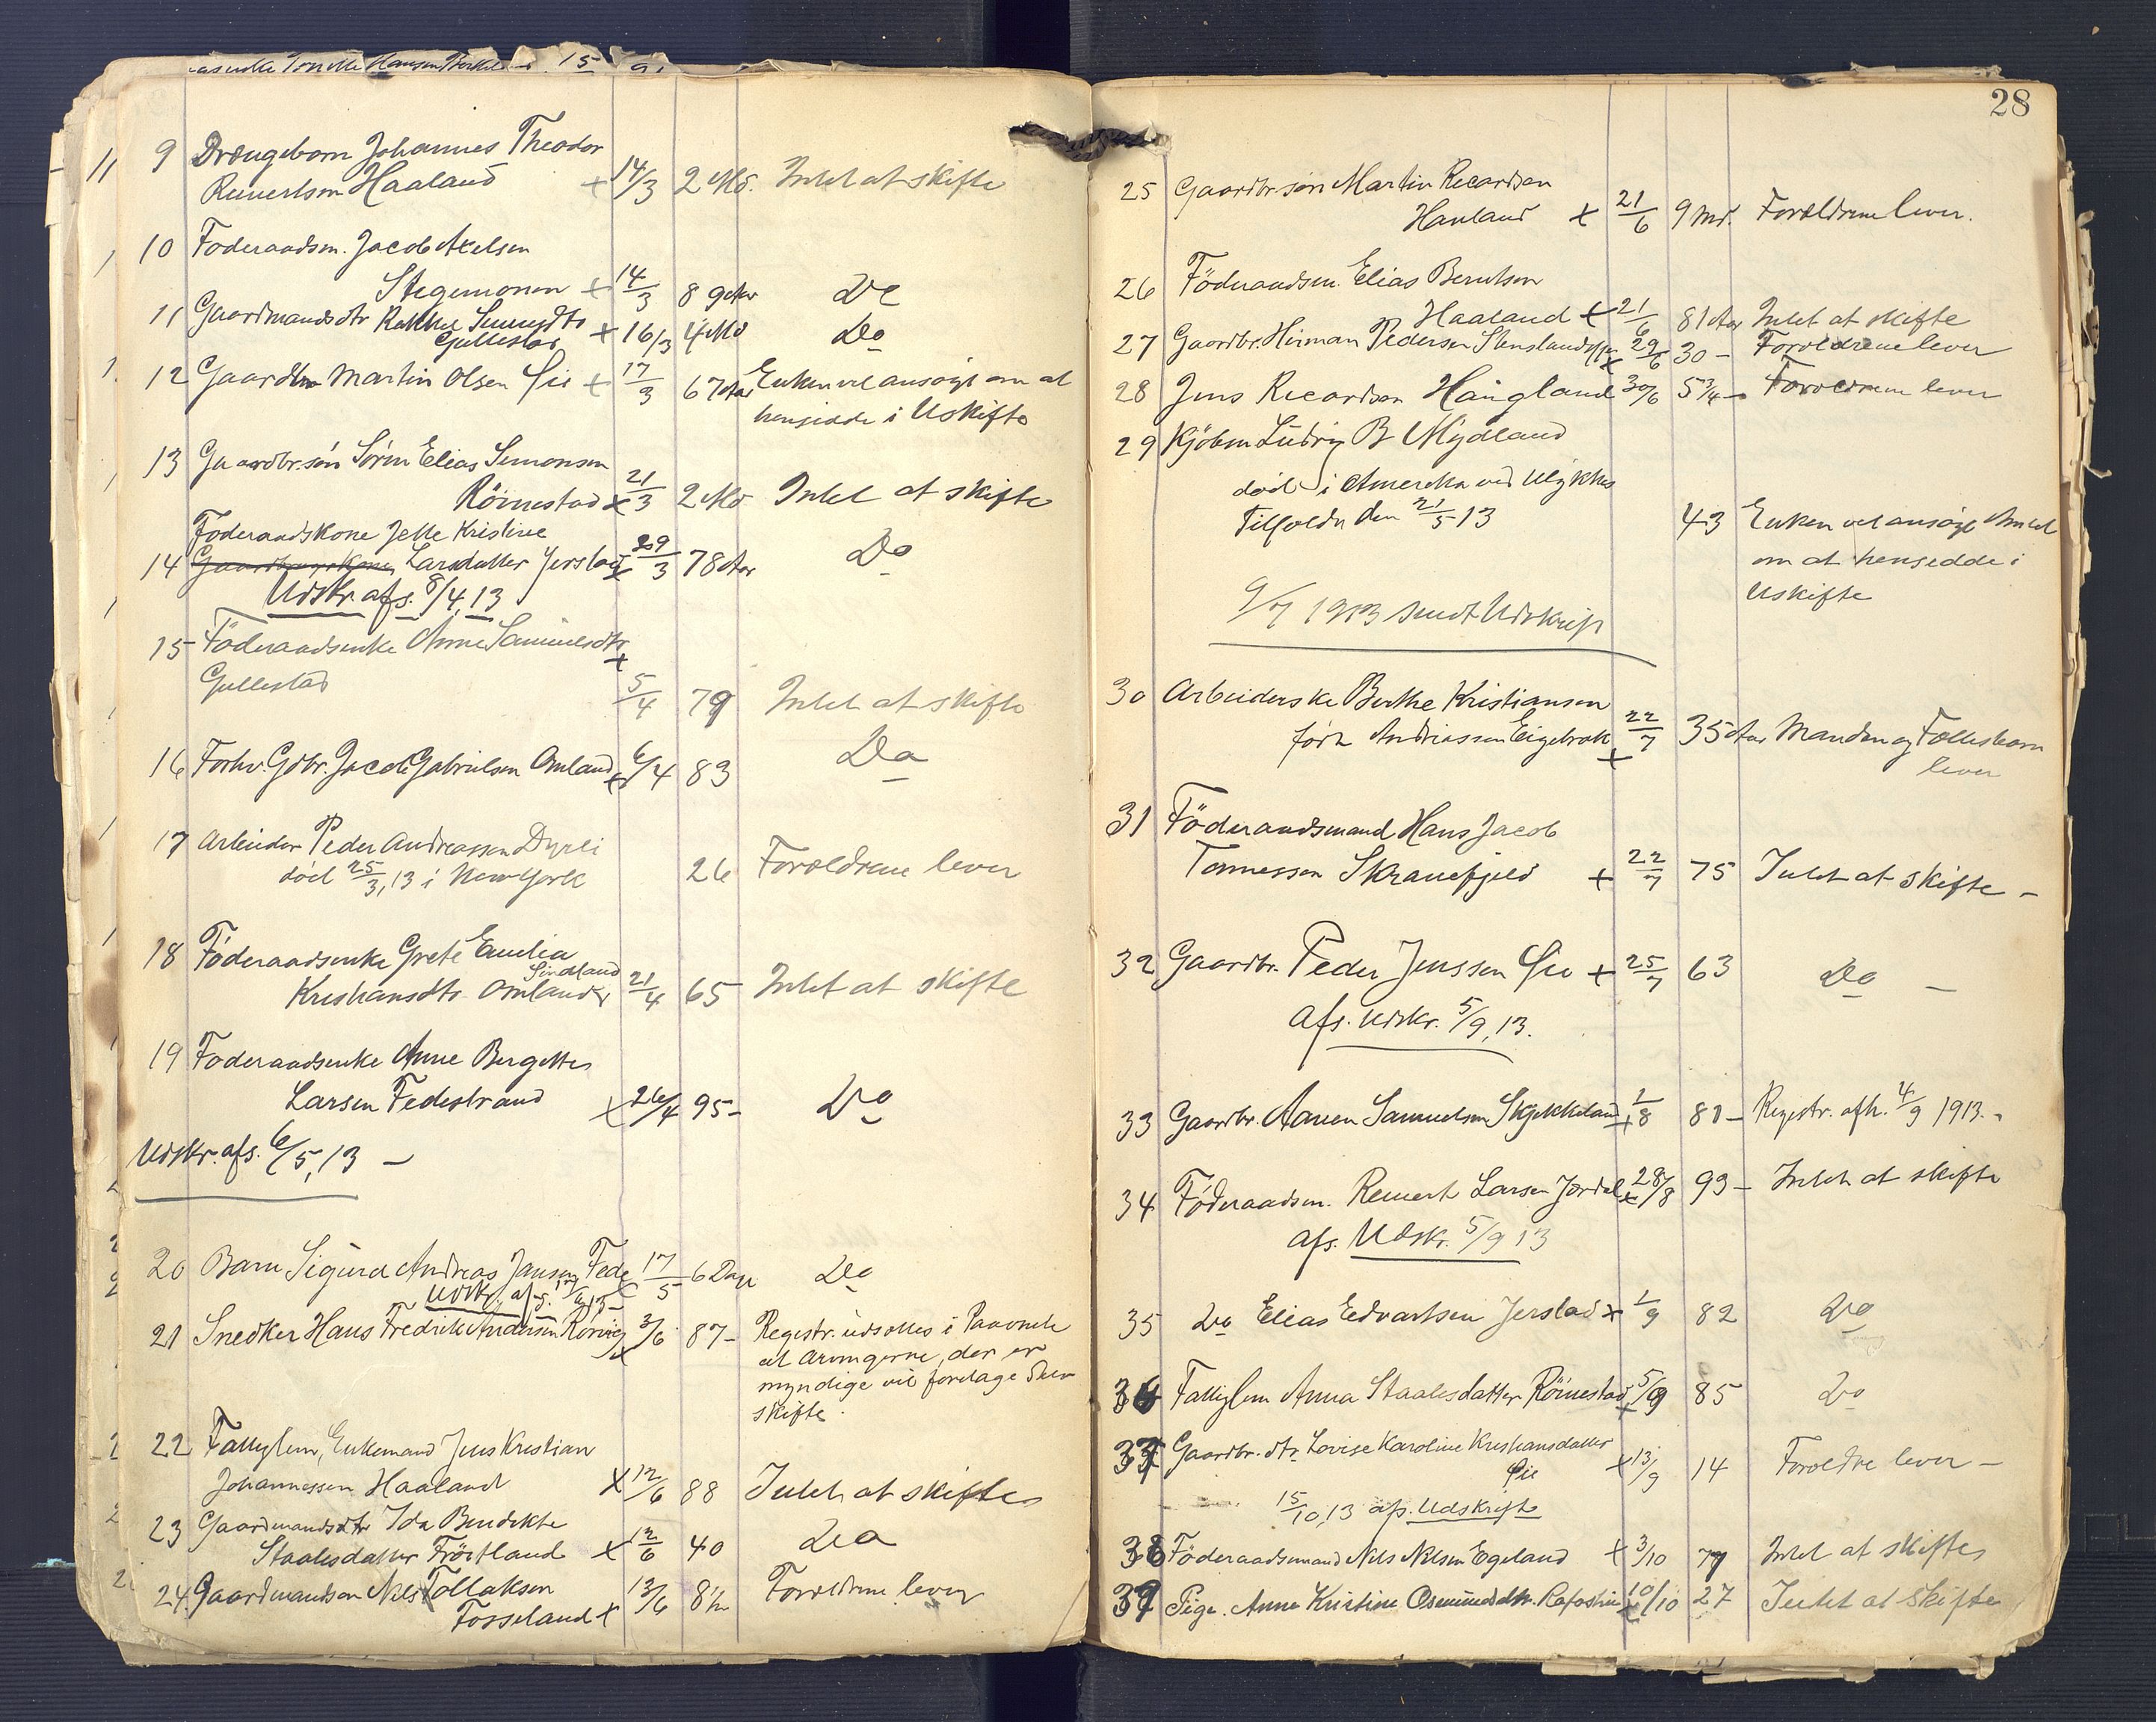 9 Drengebarn Johannes Theodor
Reinertsen Haaland + 14/3 2 Md. Intet at skifte
10 Føderaadsm. Jacob Axelsen
Stegemonen + 14/3 89 Aar Do
11 Gaardmandsdtr Simundts
Gullestad + 16/3 4 Md Do
12 Gaardbr Martin Olsen Øie + 17/3 67 Aar Enken vil ansøge om at
hensidde i Uskifte
13 Gaardbr.søn Søren Elias Simonsen
Röinestad x 21/3 2 Md Intet at skifte
Føderaadskone Jelle Kristine
14 Larsdatter Jerstad x 29/3 78 Aar Do
Udskr. afs. 8/4,13
15 Föderaadsenke Anne Samuelsdtr +
Gullestad 5/4 79 Intet at skifte
16 Forhv. Gdbr. Jacob Gabrielsen Omland x 6/4 83 Do
17 Arbeider Peder Andreassen Dyrli
död 25/3,13 i New York 26 Forældrene lever
18 Föderaadsenke Grete Emelia
Sindland
Kristiansdtr Omland x 21/4 65 Intet at skifte
19 Föderaadsenke Anne Bergettes
Larsen Fedestrand x 26/4 95 - Do
Udskr. afs. 6/5,13 -
20 Barn Sigurd Andreas Jansen Fede x 17/5 6 Dage Do
Udskr. afs.
21 Snedker Hans Fredrik Andersen Rörvig x 3/6 87 - Registr. udsættes i Paavente
at Arvingerne, der er
myndige vil foretage
skifte.
22 Fattiglem, Enkemand Jens Kristian
Johannessen Haaland x 12/6 88 Intet at skifte
23 Gaardmandsdtr Ida Bendikte
Staalesdatter Fröitland x 12/6 40 Do
24 Gaardmandsøn Nils Tollaksen
Fosseland x 13/6 8½ Forældrene lever
28
25 Gaardbr søn Martin Recardsen
Hauland x 21/6 9 Md. Forældrene lever.
26 Föderaadsm. Elias Berntsen
Haaland x 21/6 81 Aar Intet at skifte
27 Gaardbr. Herman Pedersen x 29/6 30 - Forældrene lever
28 Jens Recardsen Haugland 30/6 5¾ - Forældrene lever
29 Kjöbm Ludvig B Mydland
död i Amerika ved Ulykkes
Tilfælde den 21/5 13 43 Enken vil ansøge
om at hensedde i
Uskifte
9/7 1913 sendt Udskrift
30 Arbeiderske Berthe Kristiansen
født Andreassen Eigebrok + 22/7 35 Aar Manden og Fællesbarn
lever
31 Föderaadsmand Hans Jacob
Tønnessen Skranefjeld + 22/7 75 Intet at skifte -
32 Gaardbr. Peder Jenssen Øie + 25/7 63 Do -
Afs. Udskr. 5/9,13.
33 Gaardbr. Aanen Samuelsen Skjekkeland + 1/8 81 - Registr. afh. 4/9 1913.
34 Föderaadsm. Reinert Larsen Jordal x 28/8 93 - Intet at skifte
Afs. Udskr. 5/9 13
35 Do Elias Edvartsen Jerstad x 1/9 82 Do
36 Fattiglem Anna Staalesdatter Röinestad x 5/9 85 Do
37 Gaardbr. dtr. Lovise Karoline Kristiansdatter
Øie x 13/9 14 Forældre lever -
15/10,13 afs. Udskrift
38 Föderaadsmand Nils Nilsen Egeland x 3/10 77 Intet at skifte
39 Pige. Anne Kristine Osmundsdtr. x 10/10 27 Intet at skifte